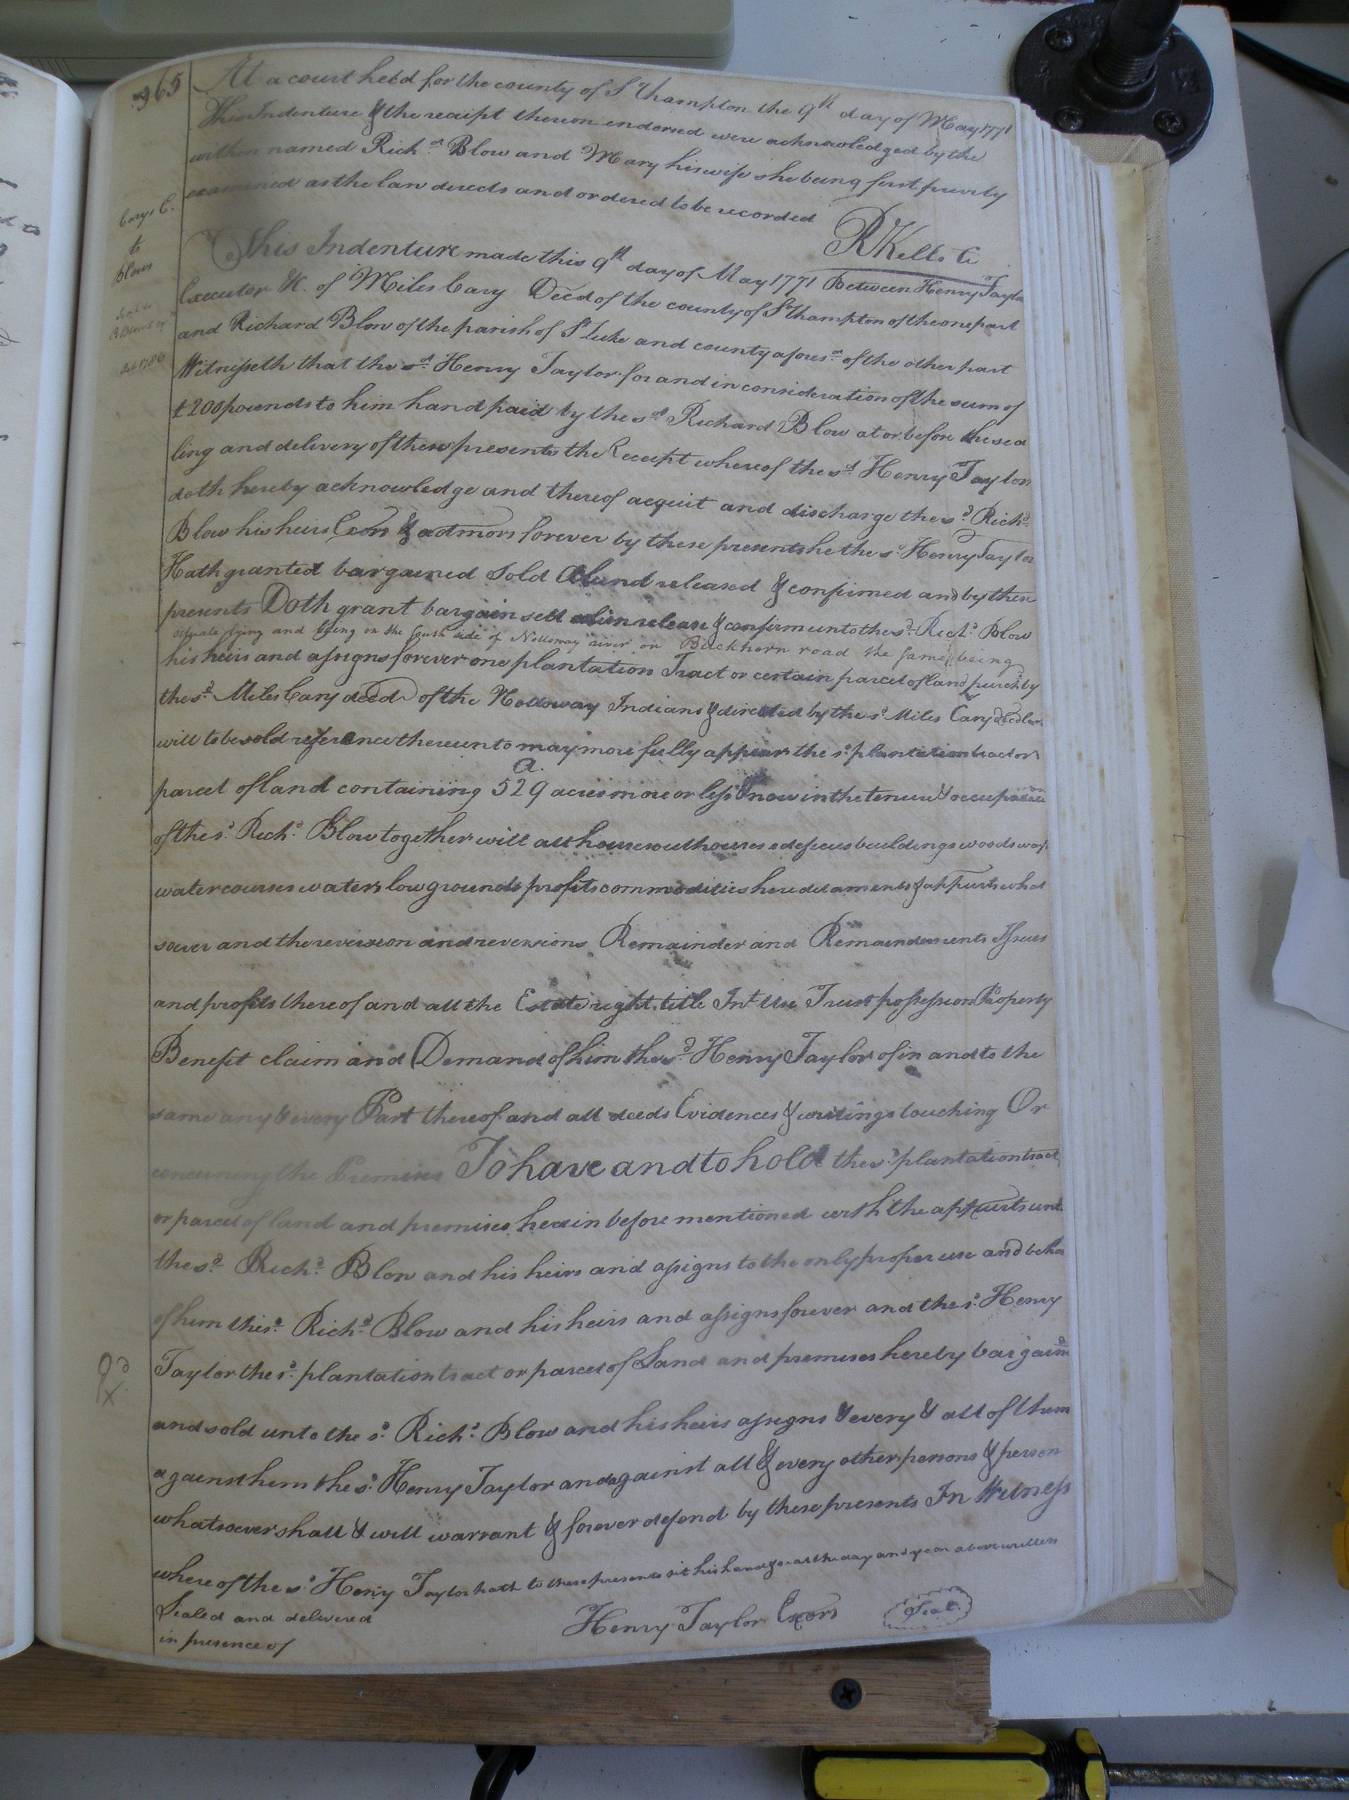 365
At a court held for the county of S Thampton the 9th day of May 1771
This Indenture & the receipt thereon endorsed were acknowledged by the
within named Richd. Blow and Mary his wife she being first privily
examined as the law directs and ordered to be recorded
RKello Cl
Carys E.
to
Blow
This Indenture made this 9th day of May 1771 Between Henry Taylor
Executor &c. of Miles Cary Decd of the county of S Thampton of the one part
and Richard Blow of the parish of St Luke and county aforesd. of the other part
Witnesseth that the sd. Henry Taylor for and in consideration of the sum of
£200 pounds to him hand paid by the sd Richard Blow at or before the sea
ling and delivery of these presents the Receipt whereof the sd Henry Taylor
doth hereby acknowledge and thereof acquit and discharge the sd. Richd.
Blow his heirs Exors & admors forever by these presents he the sd Henry Taylor
Hath granted bargained sold released & confirmed and by these
presents Doth grant bargain sell alien release & confirm unto the sd. Richd. Blow
situate lying and being on the South side of Nottoway river on Buckhorn road the same being
his heirs and assigns forever one plantation Tract or certain parcel of land purchd by
the sd. Miles Cary decd of the Nottoway Indians & directed by the sd Miles Cary
will to be sold reference thereunto may more fully appear the sd. plantation tract or
parcel of land containing 529 acres more or less & now in the tenure & occupation
a.
of the sd. Richd. Blow together will all houses outhouses edifices buildings woods ways
watercourses waters low grounds profits commodities heredaments & appurts what
soever and the reversion and reversions Remainder and Remaindements Issues
and profits thereof and all the Estate right title Int Use Trust possession Property
Benefit claim and Demand of him the sd. Henry Taylor of in and to the
same any & every Part thereof and all deeds Evidences & writings touching Or
concerning the Premises To have and to hold the sd. plantation tract
or parcel of land and premises herein before mentioned with the appurts unto
the sd. Richd. Blow and his heirs and assigns to the only proper use and behoo
of him the sd. Richd. Blow and his heirs and assigns forever and the sd. Henry
Taylor the sd. plantation tract or parcel of Land and premises hereby bargaind
and sold unto the sd. Richd. Blow and his heirs assigns & every & all of them
against hem the sd. Henry Taylor and against all & every other persons & person
whatsoever shall & will warrant & forever defend by these presents In Witness
whereof the sd Henry Taylor hath to these presents set his hand & seal the day and year above written
Sealed and delivered
in presence of
Henry Taylor Exors
Seal